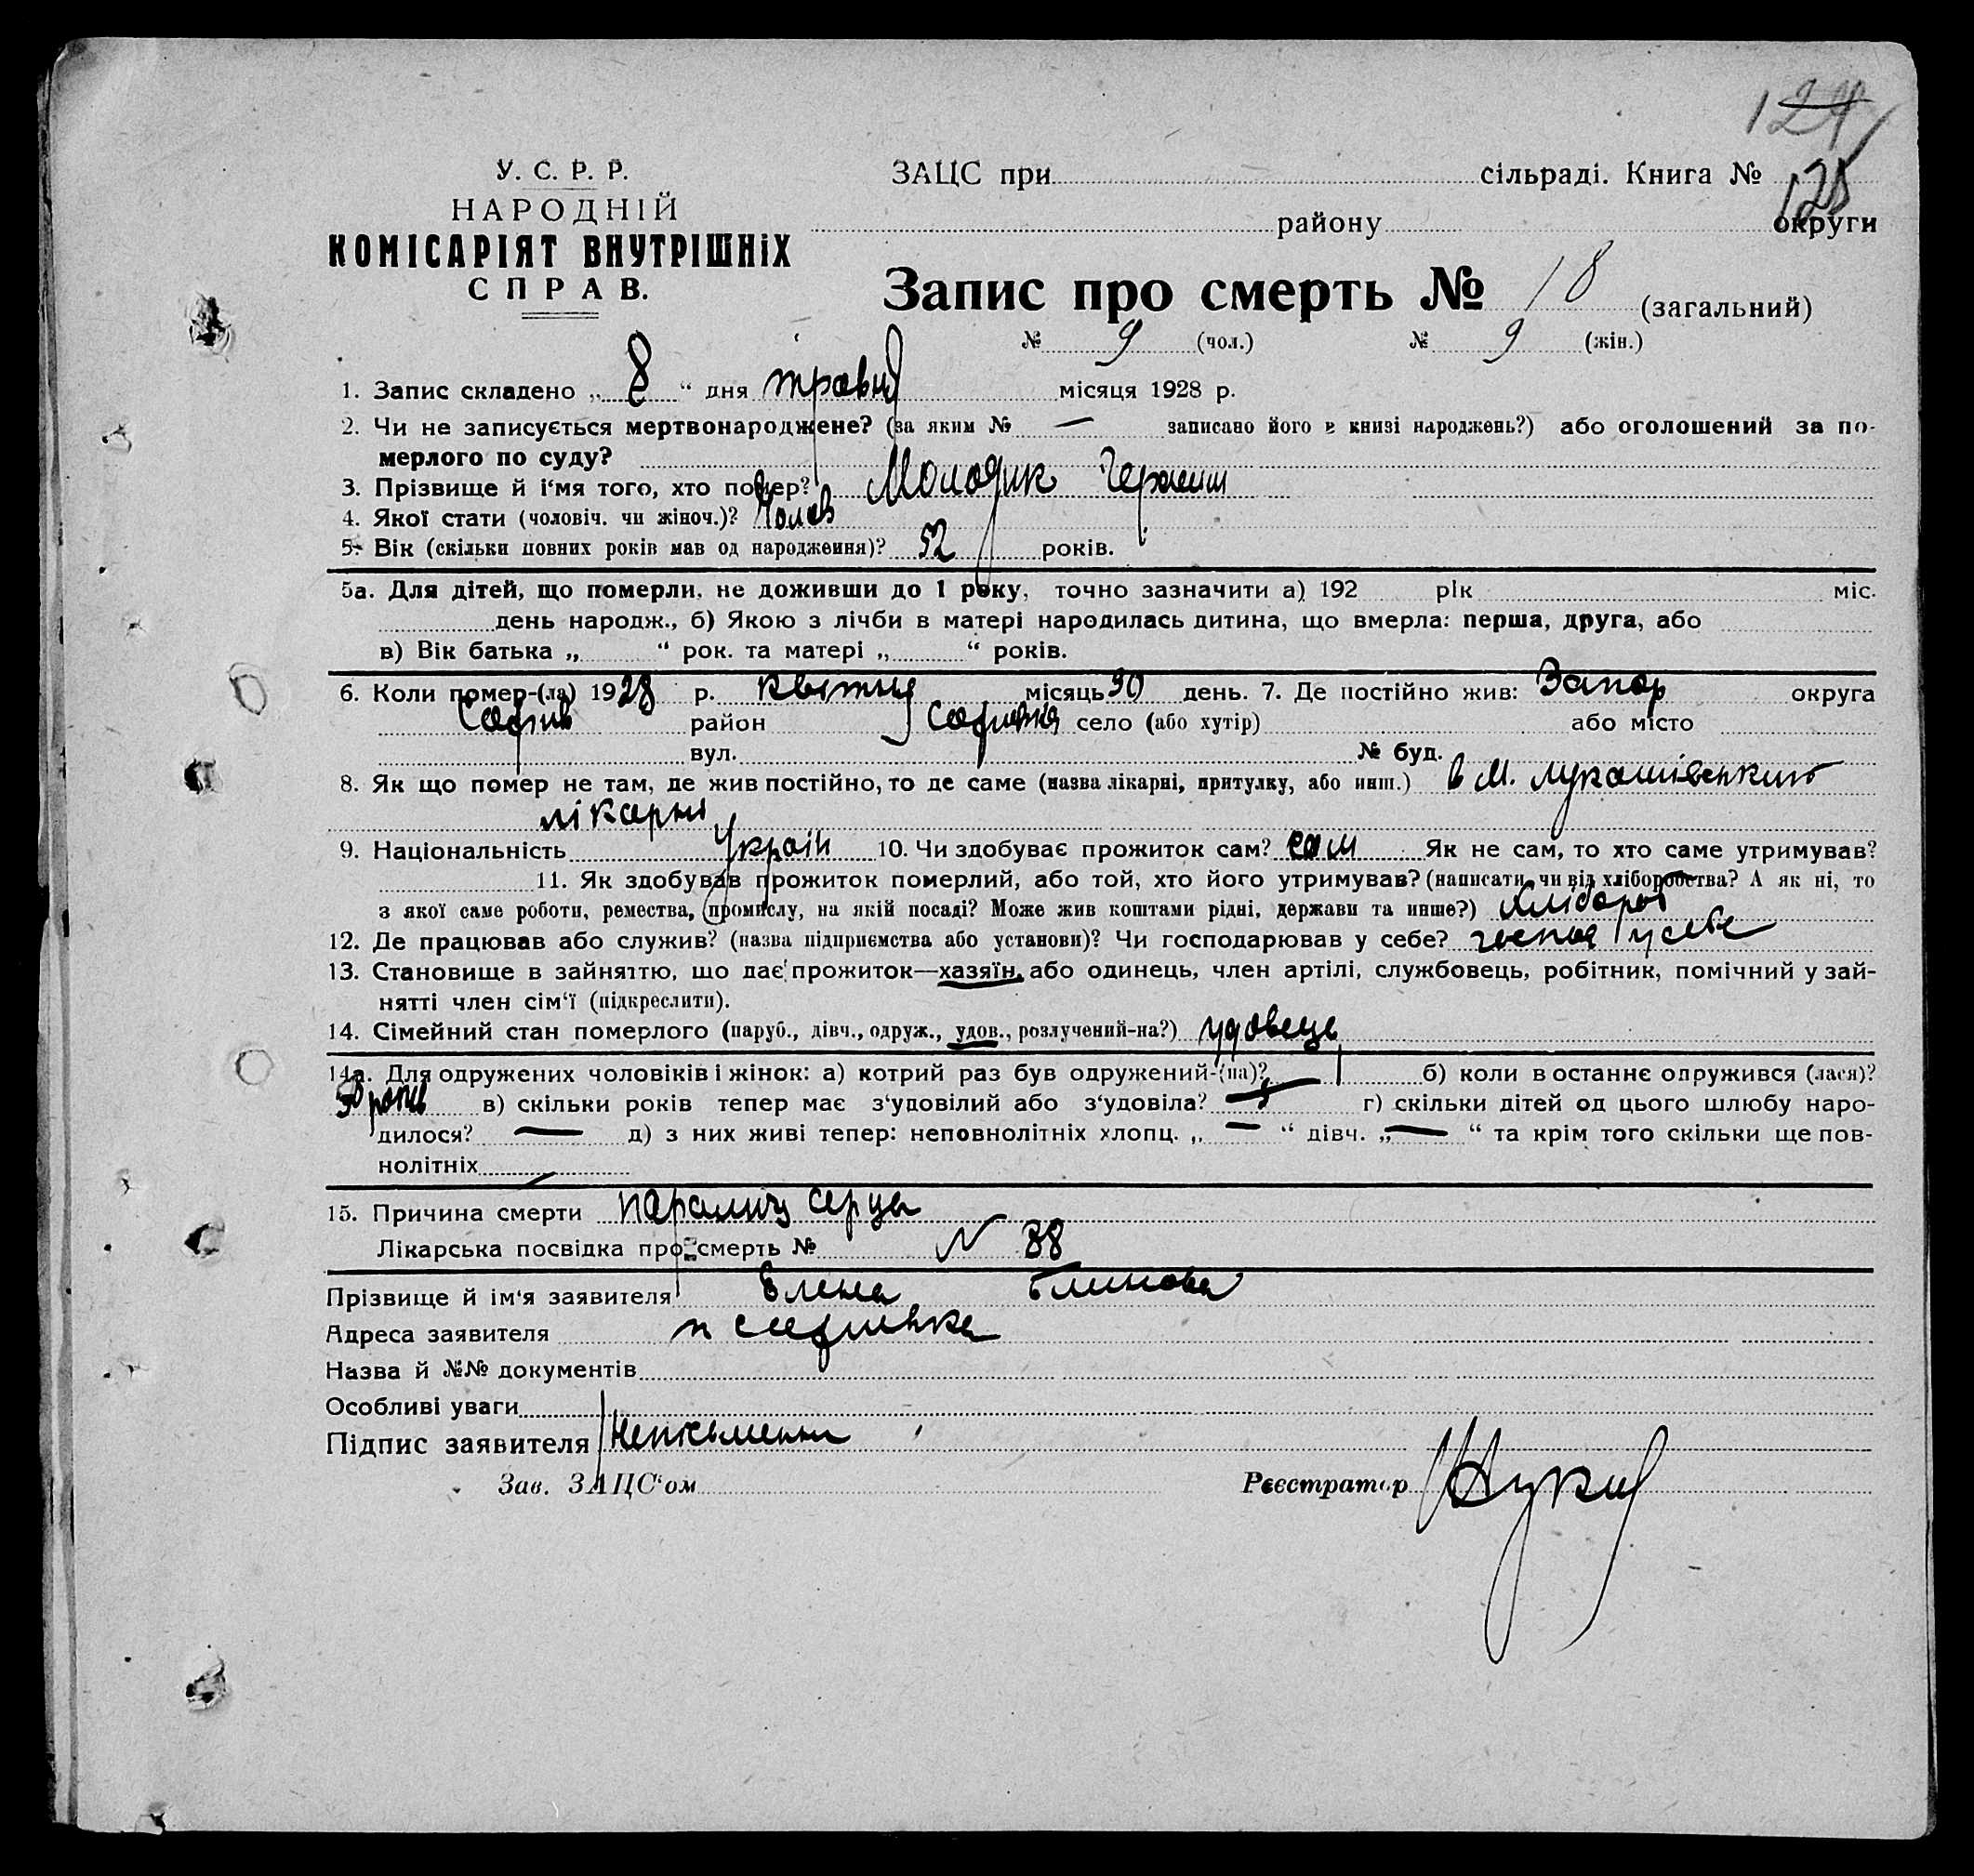 124
У. С. Р. Р.
НАРОДНІЙ
КОМІСАРІЯТ ВНУТРІШНІХ
СПРАВ.
ЗАЦС при сільраді. Книга №
128
району округи
Запис про смерть № 18 (загальний)
№ 9 (чол.) № 9 (жін.)
1. Запис складено „ 8 “ дня травня місяця 1928 р.
2. Чи не записується мертвонароджене? (за яким № — записано його в книзі народжень?) або оголошений за по-
мерлого по суду?
3. Прізвище й і‘мя того, хто помер? Молодик
4. Якої стати (чоловіч. чи жіноч.)? Чолов
5. Вік (скільки повних років мав од народження)? 52 років.
5а. Для дітей, що померли, не доживши до 1 року, точно зазначити а) 192 рік міс.
день народж., б) Якою з лічби в матері народилась дитина, що вмерла: перша, друга, або
в) Вік батька „ “ рок. та матері „ “ років.
6. Коли помер-(ла) 1928 р. квітня місяць 30 день. 7. Де постійно жив: Запор округа
Софіїв район Софиевка село (або хутір) або місто
вул. № буд.
8. Як що помер не там, де жив постійно, то де саме (назва лікарні, притулку, або инш.) в М. Лукашівський
лікарні
9. Національність Україн 10. Чи здобуває прожиток сам? сам Як не сам, то хто саме утримував?
11. Як здобував прожиток померлий, або той, хто його утримував? (написати, чи від хліборобства? А як ні, то
з якої саме роботи, ремества, промислу, на якій посаді? Може жив коштами рідні, держави та инше?) хлібороб
12. Де працював або служив? (назва підприємства або установи)? Чи господарював у себе? господ у себе
13. Становище в зайняттю, що дає прожиток—хазяїн, або одинець, член артілі, службовець, робітник, помічний у зай-
нятті член сім‘ї (підкреслити).
14. Сімейний стан померлого (паруб., дівч., одруж., удов., розлучений-на?) удовець
14а. Для одружених чоловіків і жінок: а) котрий раз був одружений-(на)? 1 б) коли востаннє одружився (лася)?
років в) скільки років тепер має з‘удовілий або з‘удовіла? — г) скільки дітей од цього шлюбу наро-
дилося? — д) з них живі тепер: неповнолітніх хлопц. „ — “ дівч. „ — “ та крім того скільки ще пов-
нолітніх —
15. Причина смерти параліч серця
Лікарська посвідка про смерть № N 38
Прізвище й ім‘я заявителя Елена Блинова
Адреса заявителя п Софиевка
Назва й №№ документів
Особливі уваги
Підпис заявителя Неписьменни
Зав. ЗАЦС‘ом Реєстратор